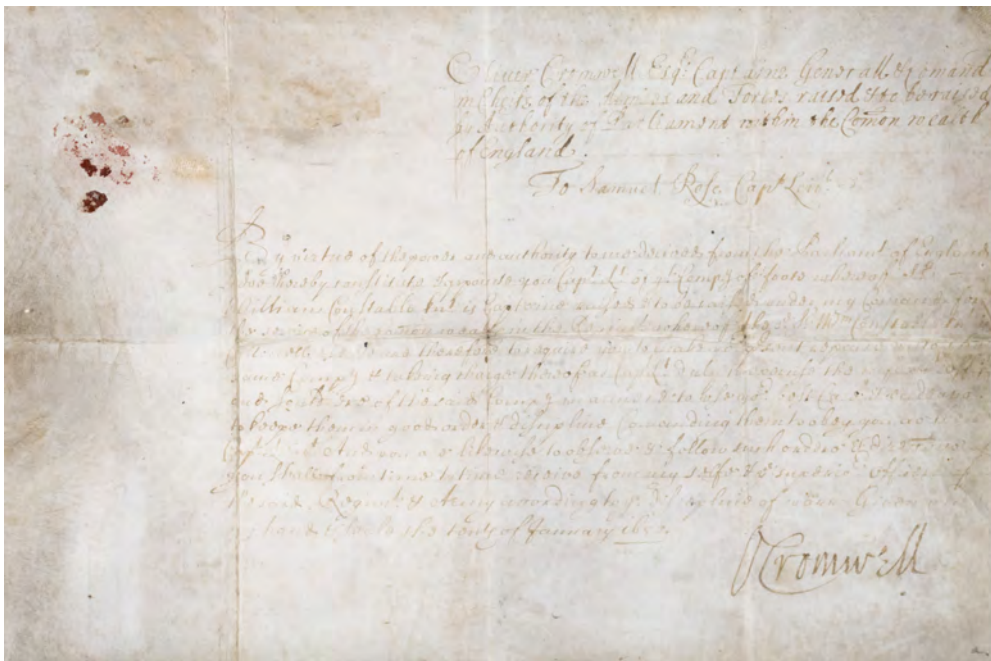 Oliver Cromwell Esqr. Captaine Generall & Comand
in Cheife of the Armies and Forces raised & to be raised
by Authority of Parliament within the Comon wealth
of England.
To Samuel Rose Capt Leiut
By virtue of the power and authority to me derived from the Parliamt of England
I doe hereby constitute & appointe you Capt Lt of ye Compy of foote whereof
William Constable is Captaine raised & to be raised under my Comand for
ye service of the Comonwealth in the Regimt whereof the Wm Constable
is Collonell These are therefore to require you to make yor present repaire unto the
same Compy & takeing charge thereof as Capt Lt duly to exercise the
and Souldiers of the said Compy in armes & to use yor best care & endeavor
to keepe them in good order & discipline Comanding them to obey you as their
Capt Lt And you are likewise to observe & follow such orders & directions as
you shall from time to time receive from my selfe & ye superior Officers of
the said Regimt & Army according to ye discipline of warr Given under
my hand & seale the of January
OCromwell